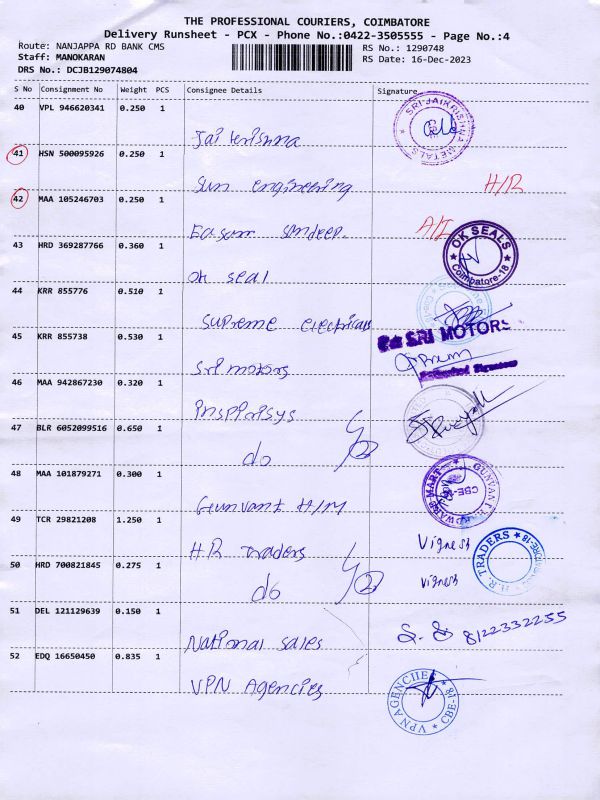 THE PROFESSIONAL COURIERS, COIMBATORE
Delivery Runsheet - PCX - Phone No.:0422-3505555 - Page No.:4
Route: NANJAPPA RD BANK CMS
RS No.: 1290748
Staff: MANOKARAN
RS Date: 16-Dec-2023
DRS No.: DCJB129074804
S No Consignment No Weight PCS Consignee Details Signature
40 VPL 946620341 0.250 1
Jai krishna
SRI JAI KRISHNA METALS
41 HSN 500095926 0.250 1
Sun engineering H/R
42 MAA 105246703 0.250 1
Easun A/I
43 HRD 369287766 0.360 1
OK seal
OK SEALS
Coimbatore-18
44 KRR 855776 0.510 1
Supreme electricals
45 KRR 855738 0.530 1
Sri motors
SRI MOTORS
46 MAA 942867230 0.320 1
47 BLR 6052099516 0.650 1
do 2
48 MAA 101879271 0.300 1
Gunvant H/M
49 TCR 29821208 1.250 1
H.R traders Vignesh
H.R. TRADERS
50 HRD 700821845 0.275 1
do 2 vignesh
51 DEL 121129639 0.150 1
National sales 8122332255
52 EDQ 16650450 0.835 1
VPN Agencies
VPN AGENCIIES CBE-18